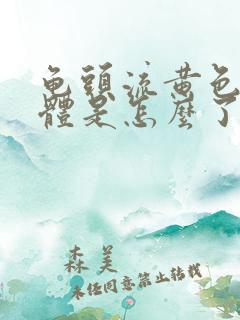 龟頭流黄色
體是怎麼了
森美
未经同意禁止转载